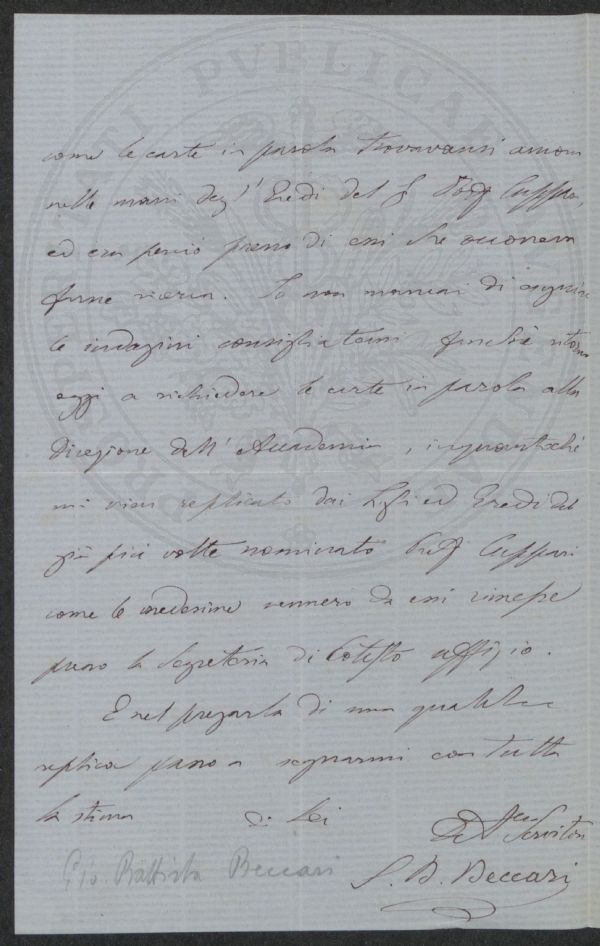 come le carte in parola trovavansi ancora
nelle mani degl' Eredi del Prof Cuppari,
ed era perciò presso di essi che occorreva
farne ricerca. Io non mancai di seguire
le indagini consigliatemi, finchè ritorno
oggi a richiedere le carte in parola alla
Direzione dell' Accademia, inquantochè
mi vien replicato dai Figli ed Eredi del
già più volte nominato Prof Cuppari
come le medesime vennero da essi rimesse
presso la Segreteria di Cotesto uffizio.
E nel pregarla di una qualche
replica passo a segnarmi con tutta
la stima di Lei
Servitore
G. B. Beccari
Gio. Battista Beccari